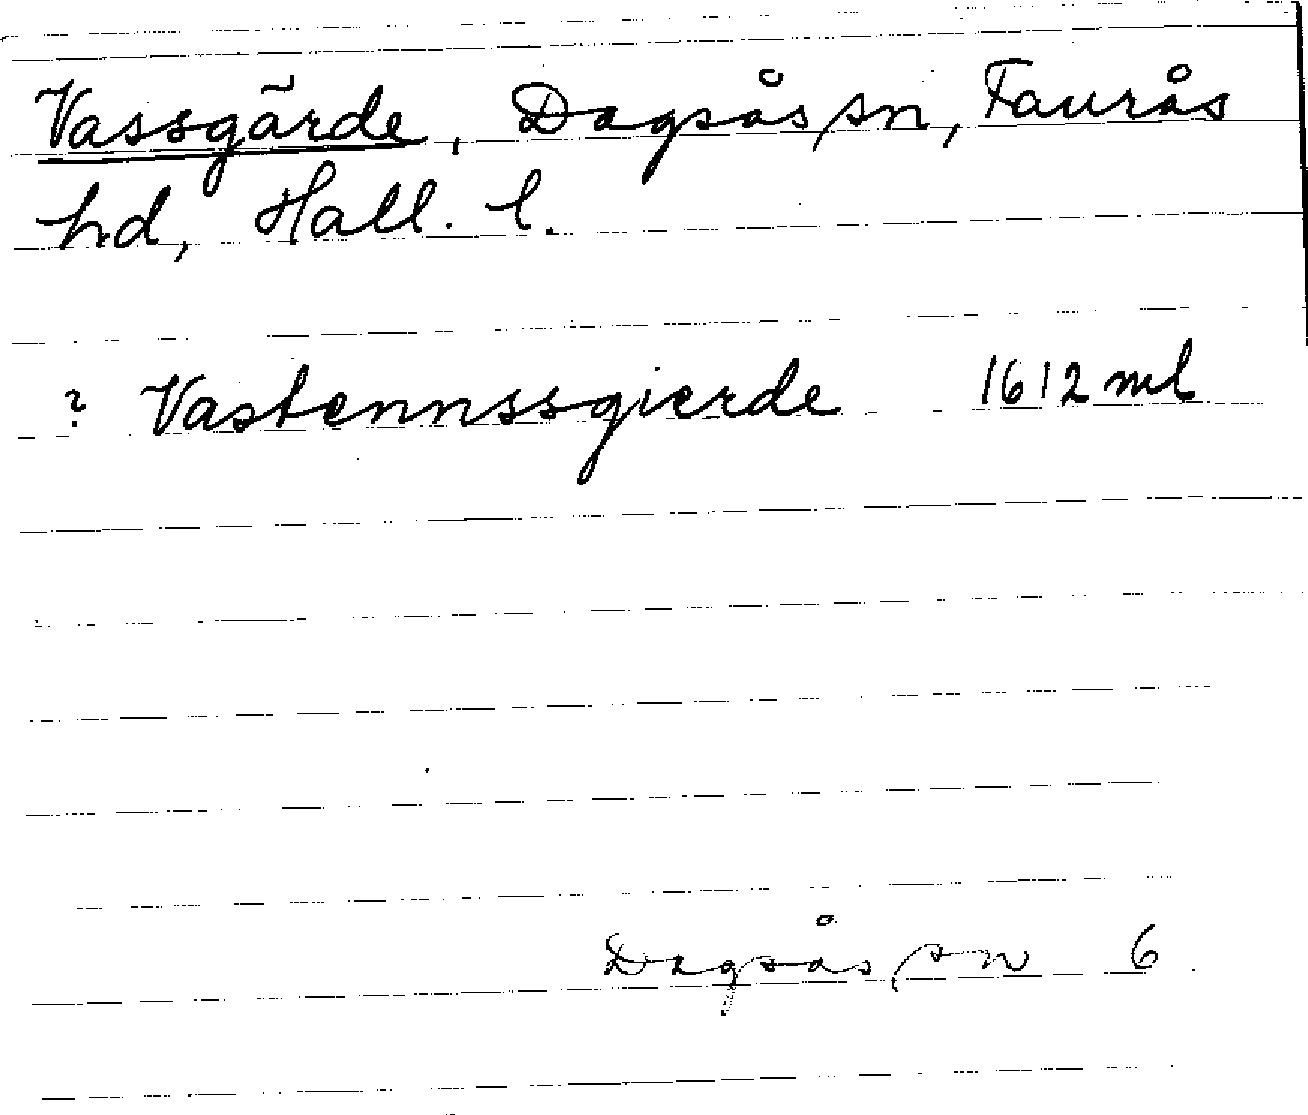 Vassgärde, Dagsås sn, Faurås
hd, Hall. l.
? Vastennssgierde 1612 ml
Dagsås sn 6